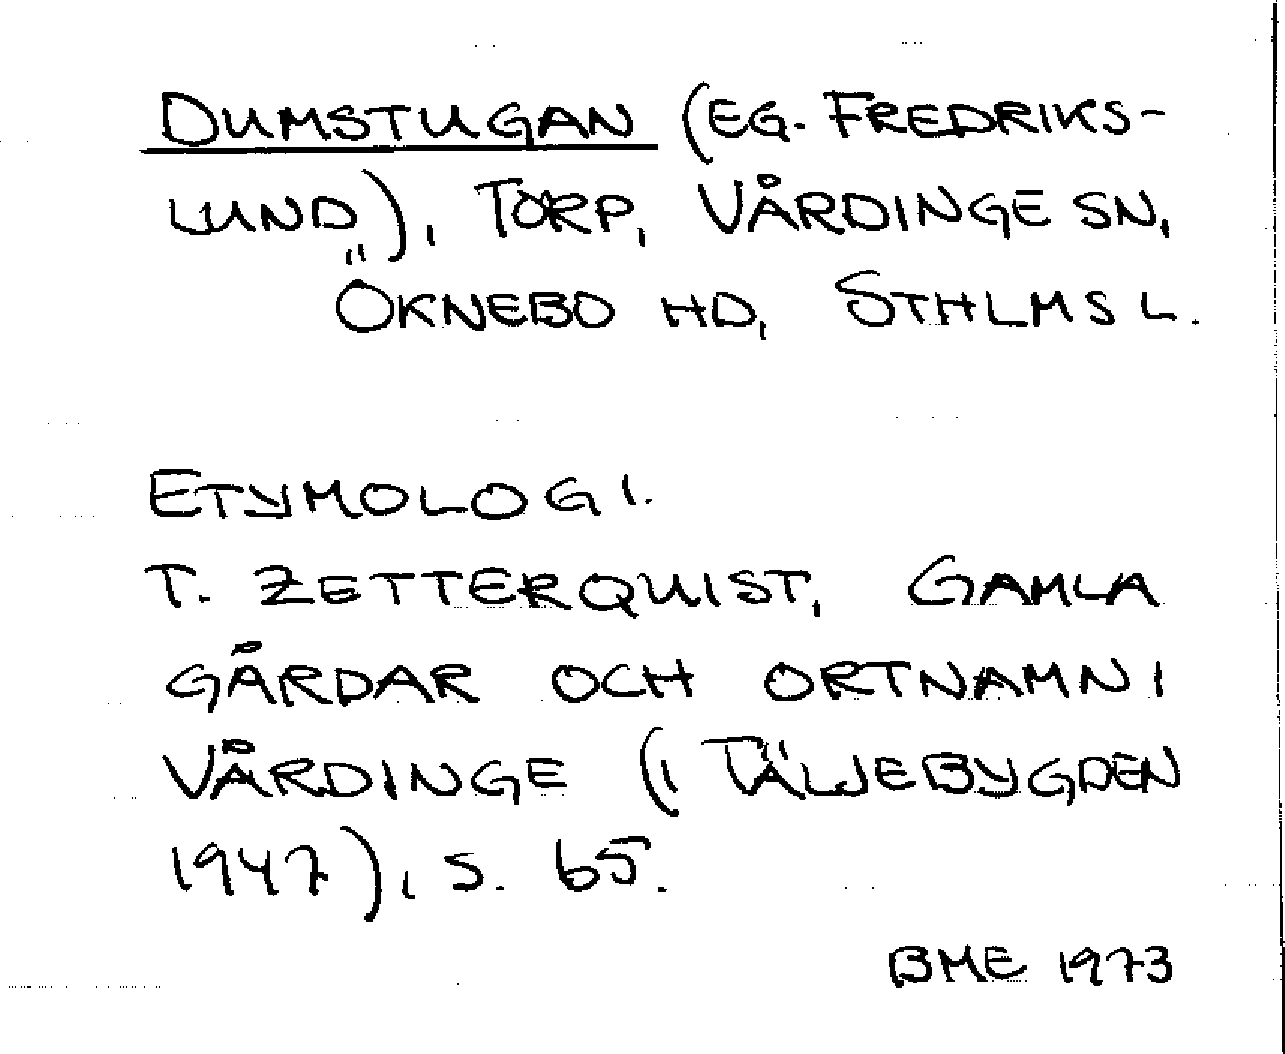 DUMSTUGAN (EG. FREDRIKS-
LUND), TORP, VÅRDINGE SN,
ÖKNEBO HD, STHLMS L.
ETYMOLOGI.
T. ZETTERQUIST, GAMLA
GÅRDAR OCH ORTNAMN I
VÅRDINGE (I TÄLJEBYGDEN
1947), S. 65.
BME 1973